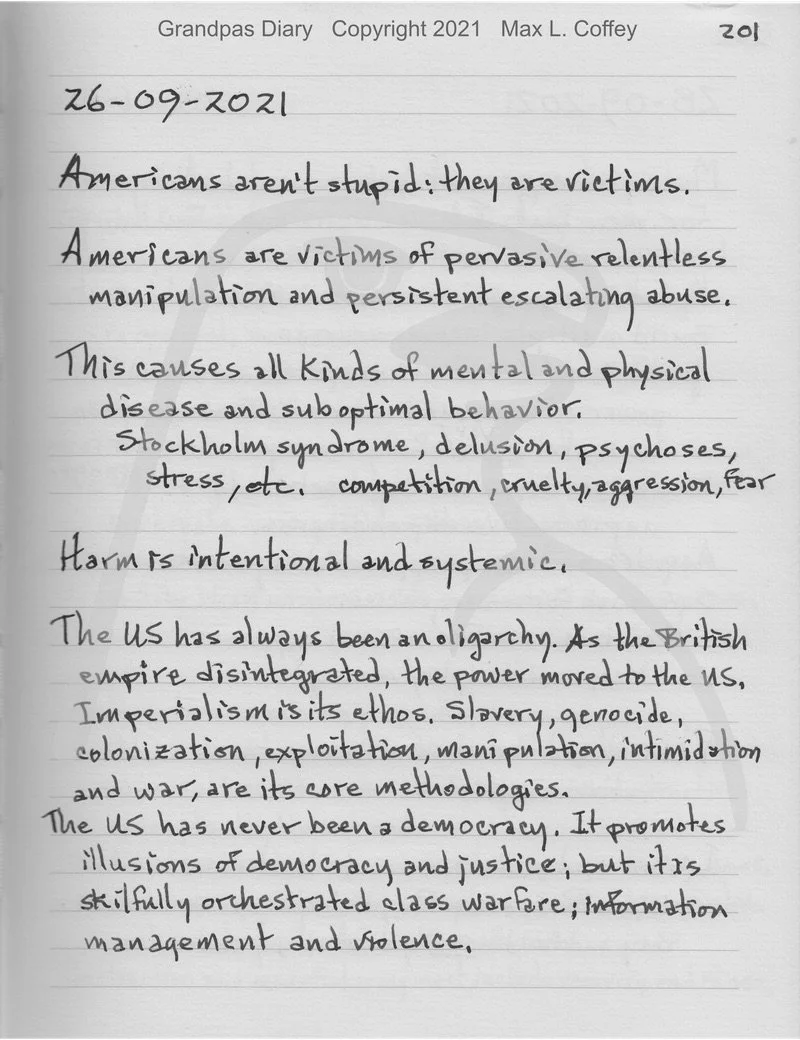 Grandpas Diary Copyright 2021 Max L. Coffey 201
26-09-2021
Americans aren't stupid: they are victims.
Americans are victims of pervasive relentless
manipulation and persistent escalating abuse.
This causes all kinds of mental and physical
disease and suboptimal behavior.
Stockholm syndrome, delusion, psychoses,
stress, etc. competition, cruelty, aggression, fear
Harm is intentional and systemic.
The US has always been an oligarchy. As the British
empire disintegrated, the power moved to the US.
Imperialism is its ethos. Slavery, genocide,
colonization, exploitation, manipulation, intimidation
and war, are its core methodologies.
The US has never been a democracy. It promotes
illusions of democracy and justice; but it is
skilfully orchestrated class warfare; information
management and violence.